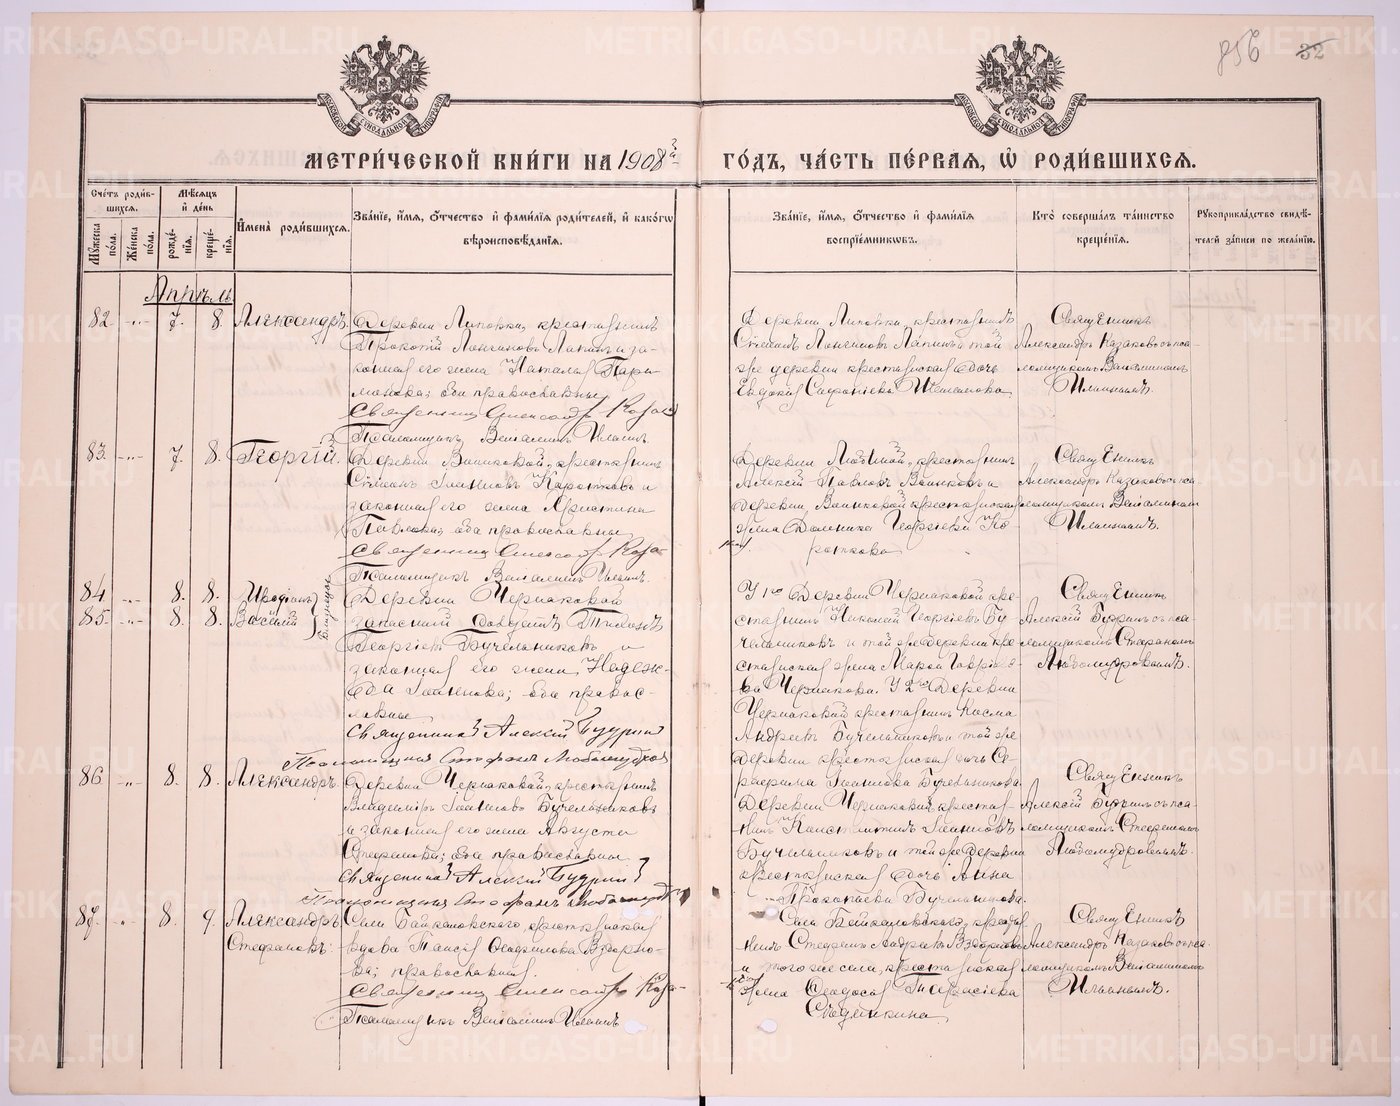 856 32
МЕТРИ́ЧЕСКОЙ КНИ́ГИ НА 1908й
ГО́ДЪ, ЧА́СТЬ ПЕ́РВАЯ, Ѡ РОДИ́ВШИХСЯ.
Сче́тъ роди́вшихся.
Мѣ́сяцъ и день
Му́жеска по́ла.
Же́нска по́ла.
рожде́нїя.
креще́нїя.
И҆мена̀ роди́вшихся.
Зва́нїе, и҆́мя, о҆́тчество и҆ фами́лїя роди́телей, и҆ како́гѡ вѣроисповѣ́данїя.
Зва́нїе, и҆́мя, о҆́тчество и҆ фами́лїя воспрїе́мникѡвъ.
Кто̀ соверша́лъ та́инство креще́нїя.
Рукоприкла́дство свидѣ́телей за́писи по жела́нїю.
Апрѣль
82 -„- 7. 8. Александръ.
Деревни Липовки, крестьянинъ
Прокопій Лонгиновъ Лапинъ и за-
конная его жена Наталія Пара-
монова; оба православные
Священникъ Александръ Казаков
Псаломщикъ Веніаминъ Ильинъ.
Деревни Липовки крестьянинъ
Стефанъ Лонгиновъ Лапинъ и той
же деревни крестьянская дочь
Евдокія Сафоніева
Священникъ
Александръ Казаковъ съ пса-
ломщикомъ Веніаминомъ
Ильинымъ.
83. -„- 7. 8. Георгій.
крестьянинъ
Стефанъ Іоанновъ Коротковъ и
законная его жена Христина
Павлова; оба православные
Священникъ Александръ Каза-
Псаломщикъ Веніаминъ Ильинъ.
Деревни крестьянинъ
Алексій Павловъ и
деревни крестьянская
жена Домника Георгіева Ко-
роткова
Священникъ
Александръ Казаковъ съ пса-
ломщикомъ Веніаминомъ
Ильинымъ.
84 -„- 8. 8. Иродіонъ
85. -„- 8. 8. Василій
Близнецы
Деревни Чермаковой
запасный солдатъ Тихонъ
Георгіевъ Бучельниковъ и
законная его жена Надеж-
да Іоаннова; оба правос-
лавные
Священникъ Алексій Будринъ
Псаломщикъ Стефанъ Любомудровъ
У 1го Деревни Чермаковой кре-
стьянинъ Николай Георгіевъ Бу-
чельниковъ и той же деревни кре-
стьянская жена Марія Гаврило-
ва Чермакова. У 2го Деревни
Чермаковой крестьянинъ Косма
Андреевъ Бучельниковъ и той же
деревни крестьянская дочь Се-
рафима Іоаннова Бучельникова
Священникъ
Алексій Будринъ съ пса-
ломщикомъ Стефаномъ
Любомудровымъ.
86 -„- 8. 8. Александръ.
Деревни Чермаковой, крестьянинъ
Владиміръ Іоанновъ Бучельниковъ
и законная его жена Августа
Стефанова; оба православные
Священникъ Алексій Будринъ
Псаломщикъ Стефанъ Любомудровъ
Деревни Чермаковой крестья-
нинъ Константинъ Іоанновъ
Бучельниковъ и той же Деревни
крестьянская дочь Анна
Прокопіева Бучельникова.
Священникъ
Алексій Будринъ съ пса-
ломщикомъ Стефаномъ
Любомудровымъ.
87. „ 8. 9. Александръ
Стефановъ.
Села Байкаловскаго, крестьянская
вдова Таисія Вздорно-
ва; православная.
Священникъ Александръ Каза-
Псаломщикъ Веніаминъ Ильинъ
Села Байкаловскаго, крестья-
нинъ Стефанъ Андреевъ Вздорновъ
и того же села, крестьянская
жена Ѳеодосія Тарасіева
Священникъ
Александръ Казаковъ съ пса-
ломщикомъ Веніаминомъ
Ильинымъ.
METRIKI.GASO-URAL.RU